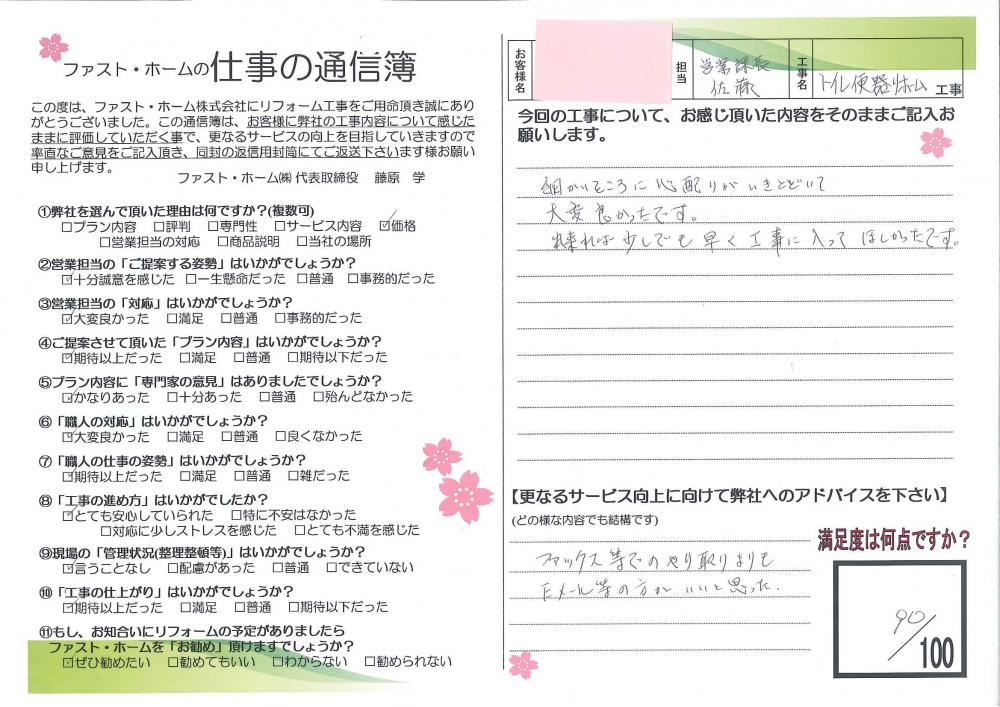 ファスト・ホームの仕事の通信簿
この度は、ファスト・ホーム株式会社にリフォーム工事をご用命頂き誠にあり
がとうございました。この通信簿は、お客様に弊社の工事内容について感じた
ままに評価していただく事で、更なるサービスの向上を目指していきますので
率直なご意見をご記入頂き、同封の返信用封筒にてご返送下さいます様お願い
申し上げます。
ファスト・ホーム㈱ 代表取締役 藤原 学
①弊社を選んで頂いた理由は何ですか?(複数可)
□プラン内容 □評判 □専門性 □サービス内容 ☑価格
□営業担当の対応 □商品説明 □当社の場所
②営業担当の「ご提案する姿勢」はいかがでしょうか?
☑十分誠意を感じた □一生懸命だった □普通 □事務的だった
③営業担当の「対応」はいかがでしょうか?
☑大変良かった □満足 □普通 □事務的だった
④ご提案させて頂いた「プラン内容」はいかがでしょうか?
☑期待以上だった □満足 □普通 □期待以下だった
⑤プラン内容に「専門家の意見」はありましたでしょうか?
☑かなりあった □十分あった □普通 □殆んどなかった
⑥「職人の対応」はいかがでしょうか?
☑大変良かった □満足 □普通 □良くなかった
⑦「職人の仕事の姿勢」はいかがでしょうか?
☑期待以上だった □満足 □普通 □雑だった
⑧「工事の進め方」はいかがでしたか?
☑とても安心していられた □特に不安はなかった
□対応に少しストレスを感じた □とても不満を感じた
⑨現場の「管理状況(整理整頓等)」はいかがでしょうか?
☑言うことなし □配慮があった □普通 □できていない
⑩「工事の仕上がり」はいかがでしょうか?
☑期待以上だった □満足 □普通 □期待以下だった
⑪もし、お知合いにリフォームの予定がありましたら
ファスト・ホームを「お勧め」頂けますでしょうか?
☑ぜひ勧めたい □勧めてもいい □わからない □勧められない
お客様名
担当 営業課長
佐藤
工事名 トイレ便器リホーム 工事
今回の工事について、お感じ頂いた内容をそのままご記入お
願いします。
細かいところに心配りがいきとどいて
大変良かったです。
出来れば少しでも早く工事に入ってほしかったです。
【更なるサービス向上に向けて弊社へのアドバイスを下さい】
(どの様な内容でも結構です)
ファックス等でのやり取りよりも
Eメール等の方がいいと思った.
満足度は何点ですか?
90/100